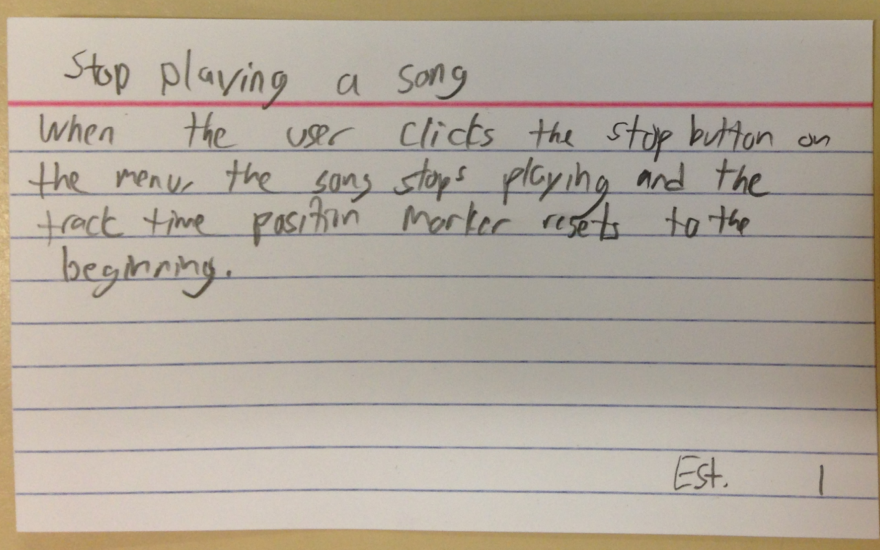 Stop playing a song
When the user clicks the stop button on
the menu, the song stops playing and the
track time position marker resets to the
beginning.
Est. 1